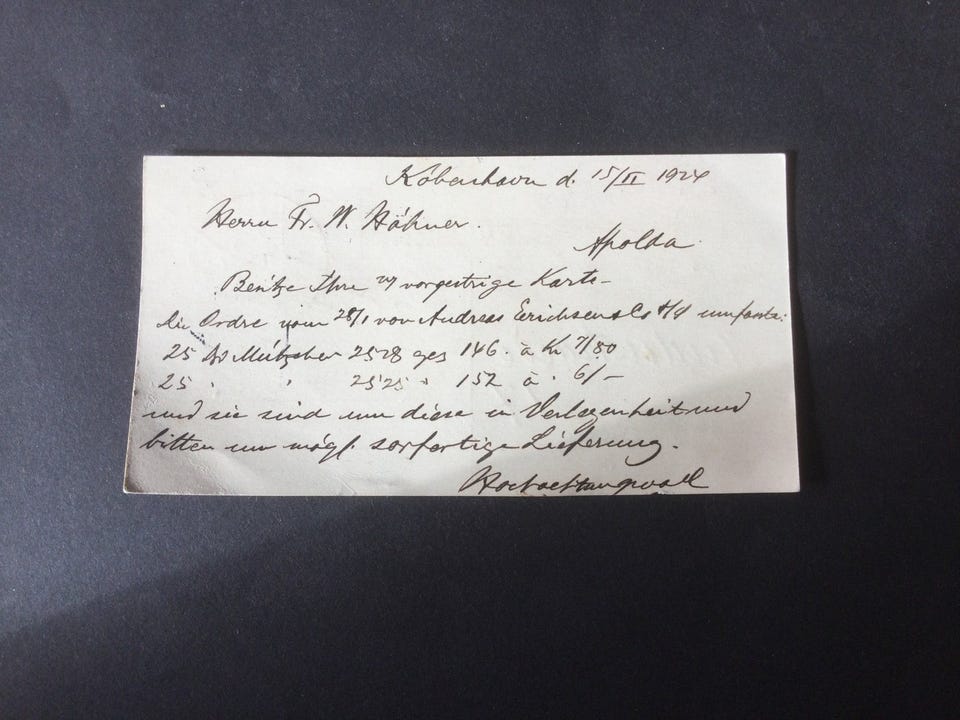 København d. 15/II 1924
Herrn Fr. W. Höhner.
Apolda.
Besitze Ihre vorgestrige Karte
die Ordre vom 28/1 von Andreas Erichsen & Co umfasste:
25 Mützchen 2528 ges 146. à Kr 7/80
25 " " 2525 " 152 à " 6/-
und sie sind um diese in Verlegenheit und
bitten um mögl. sorfortige Lieferung.
Hochachtungsvoll